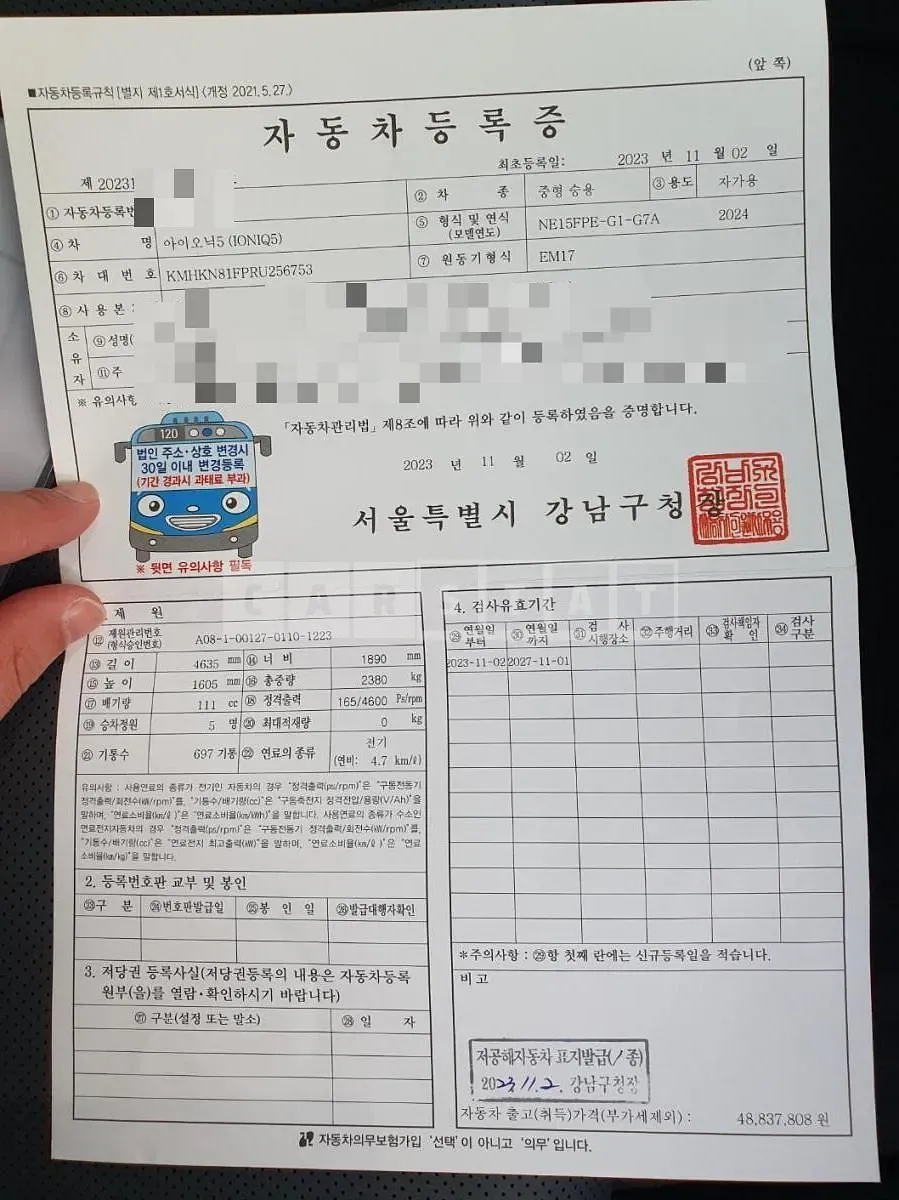 (앞 쪽)
■자동차등록규칙[별지 제1호서식]<개정 2021.5.27.>
자 동 차 등 록 증
최초등록일: 2023 년 11 월 02 일
제 20231
① 자동차등록번
② 차 종 중형 승용 ③용도 자가용
④ 차 명 아이오닉5 (IONIQ5)
⑤ 형식 및 연식 (모델연도) NE15FPE-G1-G7A 2024
⑥ 차 대 번 호 KMHKN81FPRU256753
⑦ 원동기형식 EM17
⑧ 사 용 본
소유자
⑨성명(
⑪주
※ 유의사항
「자동차관리법」 제8조에 따라 위와 같이 등록하였음을 증명합니다.
2023 년 11 월 02 일
서울특별시 강남구청장
120
법인 주소·상호 변경시
30일 이내 변경등록
(기간 경과시 과태료 부과)
※ 뒷면 유의사항 필독
CARSTAT
제 원
⑫ 제원관리번호 (형식승인번호) A08-1-00127-0110-1223
⑬ 길 이 4635 mm ⑭ 너 비 1890 mm
⑮ 높 이 1605 mm ⑯ 총중량 2380 kg
⑰ 배기량 111 cc ⑱ 정격출력 165/4600 Ps/rpm
⑲ 승차정원 5 명 ⑳ 최대적재량 0 kg
㉑ 기통수 697 기통 ㉒ 연료의 종류 전기
(연비: 4.7 km/ℓ)
유의사항 : 사용연료의 종류가 전기인 자동차의 경우 "정격출력(ps/rpm)"은 "구동전동기
정격출력/회전수(㎾/rpm)"를, "기통수/배기량(cc)"은 "구동축전지 정격전압/용량(V/Ah)"을
말하며, "연료소비율(㎞/ℓ)"은 "연료소비율(㎞/㎾h)"을 말합니다. 사용연료의 종류가 수소인
연료전지자동차의 경우 "정격출력(ps/rpm)"은 "구동전동기 정격출력/회전수(㎾/rpm)"를,
"기통수/배기량(cc)"은 "연료전지 최고출력(㎾)"을 말하며, "연료소비율(㎞/ℓ)"은 "연료
소비율(㎞/kg)"을 말합니다.
2. 등록번호판 교부 및 봉인
㉓구 분 ㉔번호판발급일 ㉕봉 인 일 ㉖발급대행자확인
3. 저당권 등록사실(저당권등록의 내용은 자동차등록
원부(을)를 열람·확인하시기 바랍니다)
㉗ 구분(설정 또는 말소) ㉘ 일 자
4. 검사유효기간
㉙ 연월일부터 ㉚ 연월일까지 ㉛ 검 사 시행장소 ㉜주행거리 ㉝ 검사책임자 확 인 ㉞ 검사구분
2023-11-02 2027-11-01
※주의사항 : ㉙항 첫째 란에는 신규등록일을 적습니다.
비고
저공해자동차 표지발급(1종)
2023.11.2. 강남구청장
자동차 출고(취득)가격(부가세제외) : 48,837,808 원
자동차의무보험가입 '선택'이 아니고 '의무'입니다.